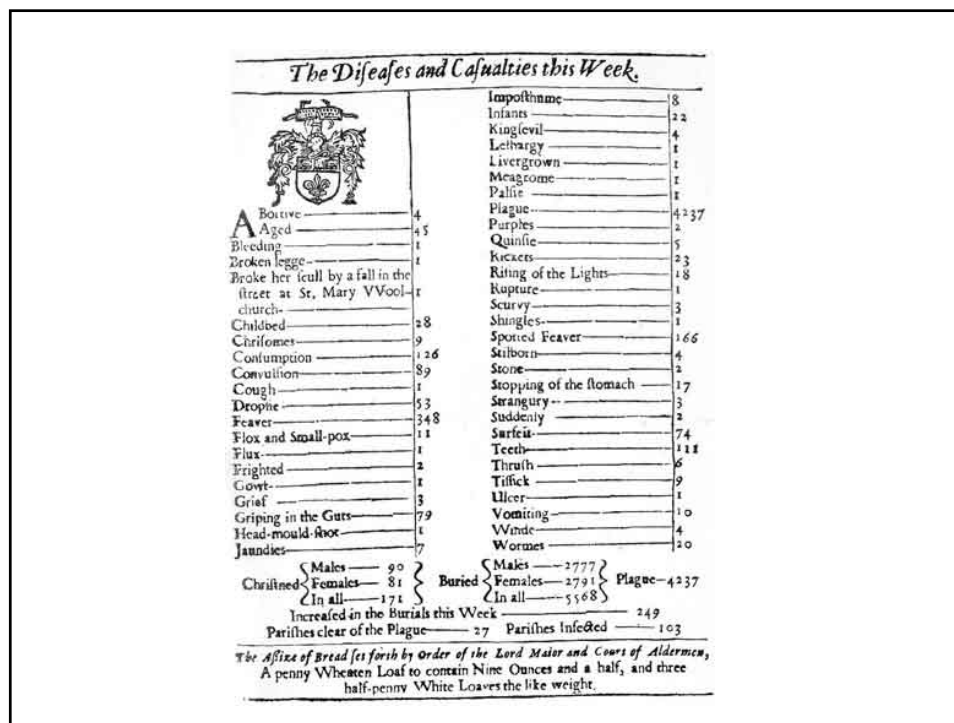 The Diſeaſes and Caſualties this Week.
ABortive 4
Aged 45
Bleeding 1
Broken legge 1
Broke her ſcull by a fall in the
ſtreet at St. Mary VVool- 1
church-
Childbed 28
Chriſomes 9
Conſumption 126
Convulſion 89
Cough 1
Dropſie 53
Feaver 348
Flox and Small-pox 11
Flux 1
Frighted 2
Gowt 1
Grief 3
Griping in the Guts 79
Head-mould-ſhot 1
Jaundies 7
Impoſthume 8
Infants 22
Kingſevil 4
Lethargy 1
Livergrown 1
Meagrome 1
Palſie 1
Plague 4237
Purples 2
Quinſie 5
Rickets 23
Riſing of the Lights 18
Rupture 1
Scurvy 3
Shingles 1
Spotted Feaver 166
Stilborn 4
Stone 2
Stopping of the ſtomach 17
Strangury 3
Suddenly 2
Surfeit 74
Teeth 111
Thruſh 6
Tiſſick 9
Ulcer 1
Vomiting 10
Winde 4
Wormes 20
Chriſtned { Males 90 Females 81 In all 171 } Buried { Males 2777 Females 2791 In all 5568 } Plague 4237
Increaſed in the Burials this Week 249
Pariſhes clear of the Plague 27 Pariſhes Infected 103
The Aſſize of Bread ſet forth by Order of the Lord Maior and Court of Aldermen,
A penny Wheaten Loaf to contain Nine Ounces and a half, and three
half-penny White Loaves the like weight.